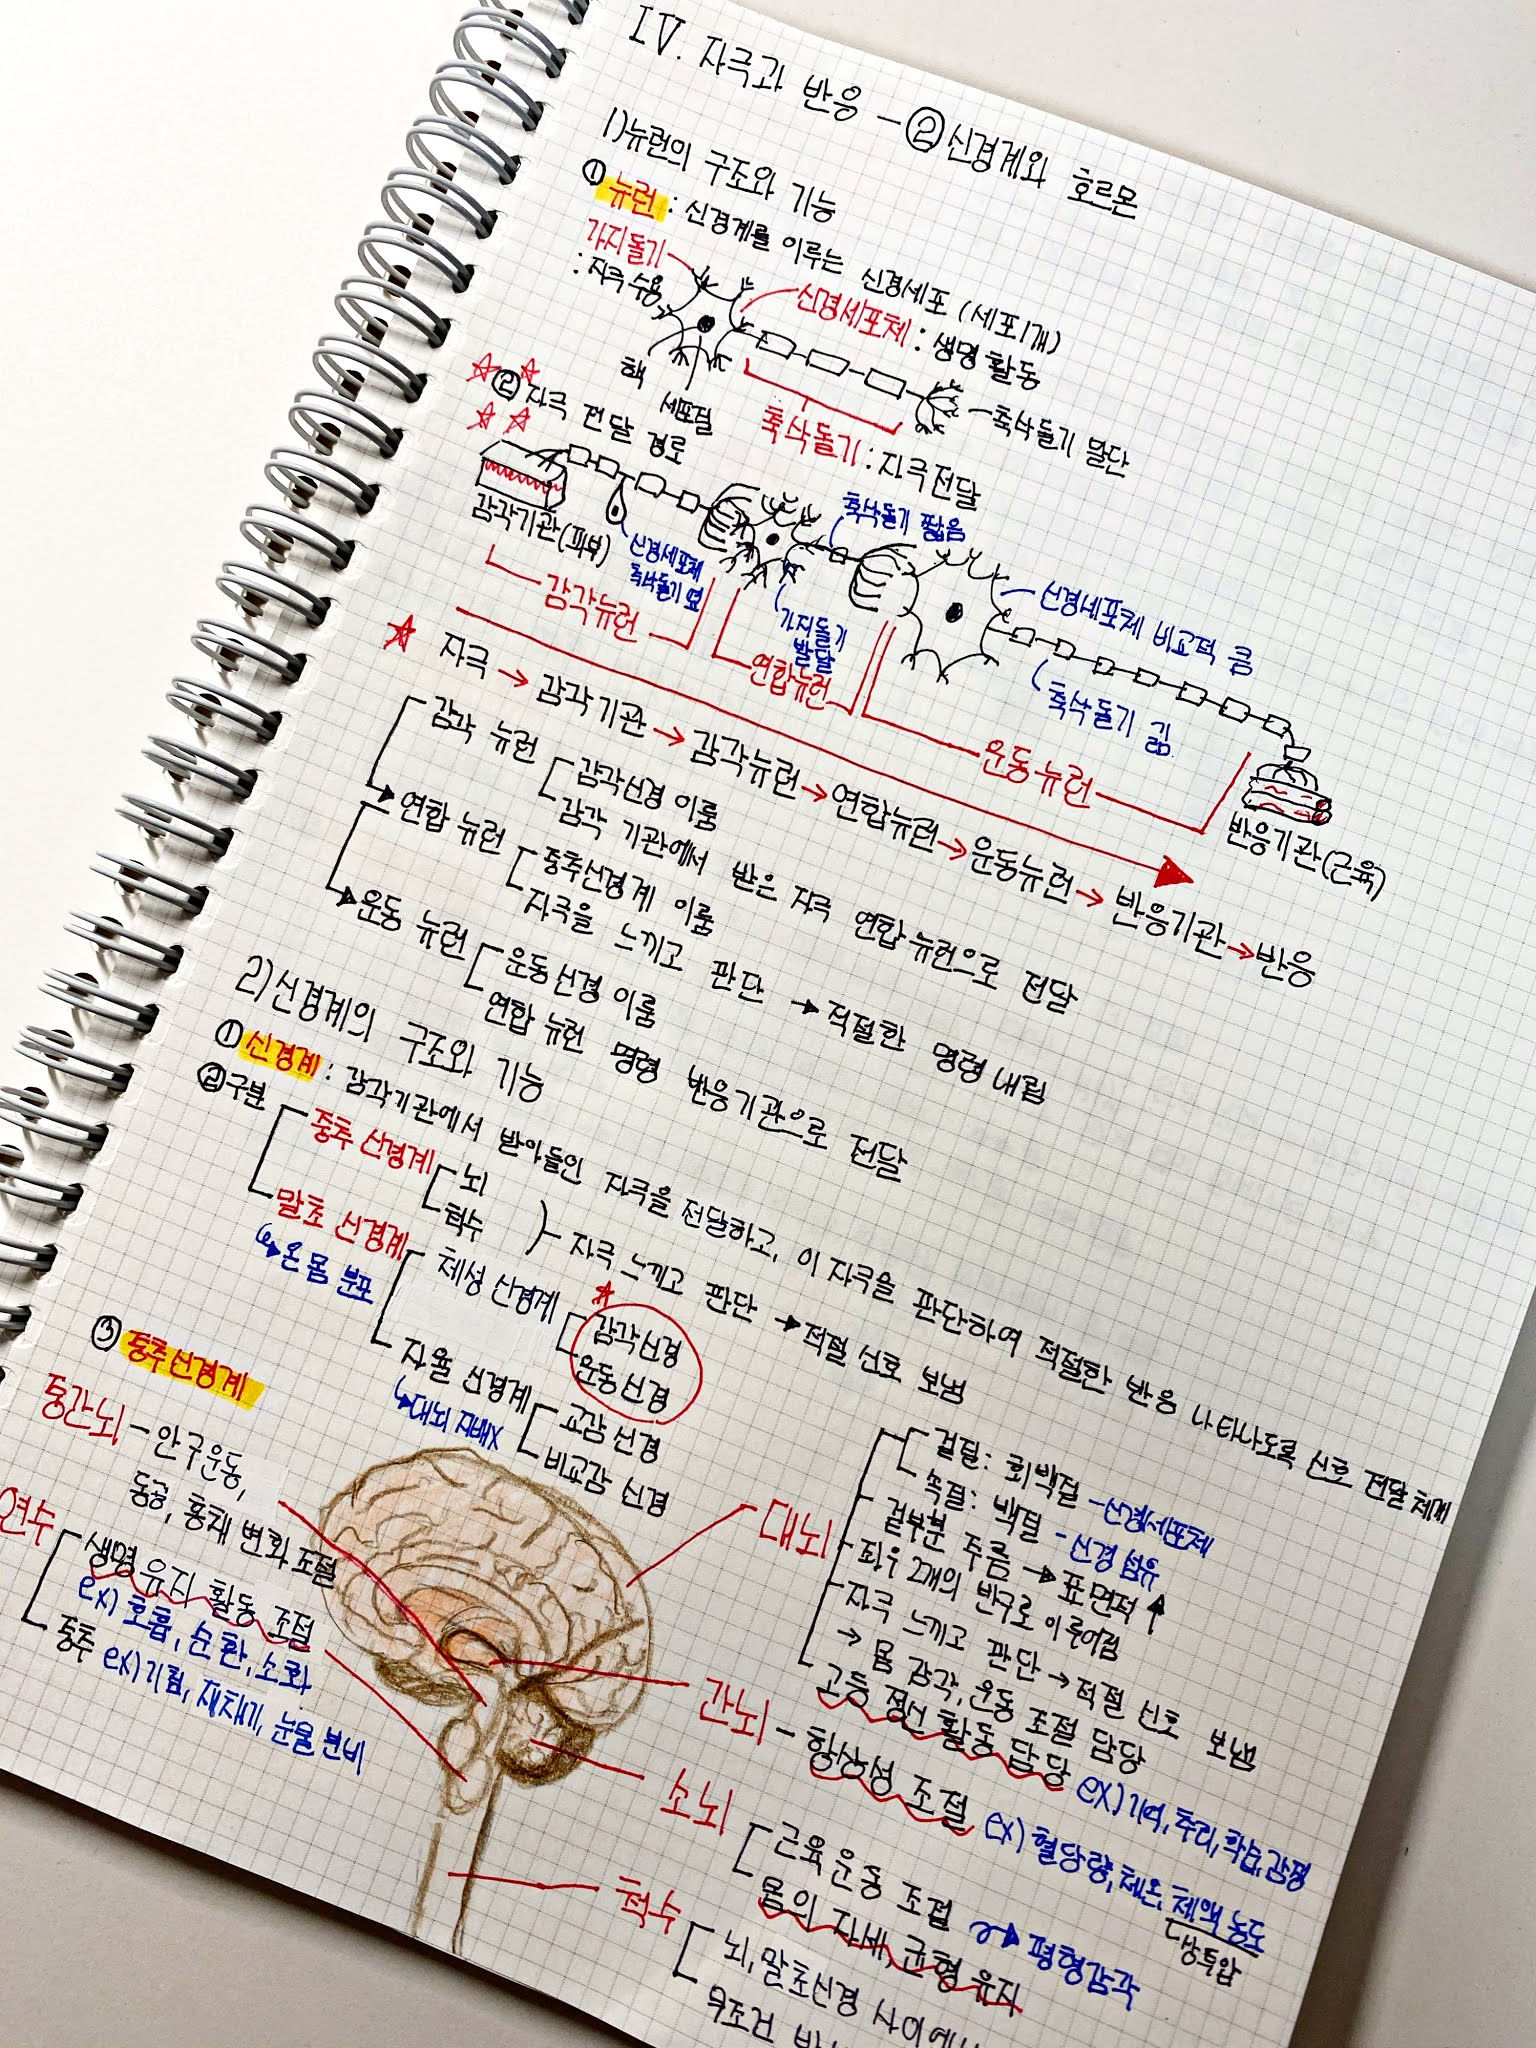 IV. 자극과 반응 - ② 신경계와 호르몬
1) 뉴런의 구조와 기능
① 뉴런 : 신경계를 이루는 신경세포 (세포1개)
가지돌기
: 자극 수용
신경세포체 : 생명 활동
핵
세포질
축삭돌기 : 자극전달
축삭돌기 말단
② 자극 전달 경로
감각기관(피부)
신경세포체
축삭돌기 옆
축삭돌기 짧음
가지돌기
발달
신경세포체 비교적 큼
축삭돌기 긺
감각뉴런
연합뉴런
운동뉴런
반응기관(근육)
자극 → 감각기관 → 감각뉴런 → 연합뉴런 → 운동뉴런 → 반응기관 → 반응
감각 뉴런
감각신경 이룸
감각 기관에서 받은 자극 연합뉴런으로 전달
연합 뉴런
중추신경계 이룸
자극을 느끼고 판단 → 적절한 명령 내림
운동 뉴런
운동신경 이룸
연합 뉴런 명령 반응기관으로 전달
2) 신경계의 구조와 기능
① 신경계 : 감각기관에서 받아들인 자극을 전달하고, 이 자극을 판단하여 적절한 반응 나타나도록 신호 전달 체계
② 구분
중추 신경계
뇌
척수
자극 느끼고 판단 → 적절 신호 보냄
말초 신경계
→ 온 몸 분포
체성 신경계
감각신경
운동신경
자율 신경계
→ 대뇌 지배X
교감 신경
비교감 신경
③ 중추신경계
중간뇌 - 안구운동,
동공, 홍채 변화 조절
연수
생명 유지 활동 조절
ex) 호흡, 순환, 소화
중추 ex) 기침, 재채기, 눈물 분비
대뇌
겉질 : 회백질 - 신경세포체
속질 : 백질 - 신경 섬유
겉부분 주름 → 표면적 ↑
좌우 2개의 반구로 이루어짐
자극 느끼고 판단 → 적절 신호 보냄
→ 몸 감각, 운동 조절 담당
고등 정신 활동 담당 ex) 기억, 추리, 학습, 감정
간뇌 - 항상성 조절 ex) 혈당량, 체온, 체액 농도
삼투압
소뇌
근육 운동 조절
몸의 자세, 균형 유지
→ 평형감각
척수
뇌, 말초신경 사이에
무조건 반